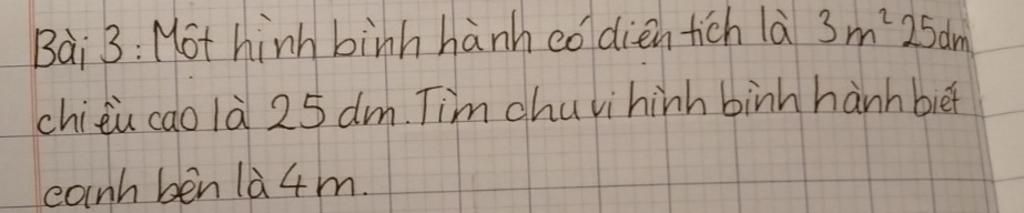 Bài 3: Một hình bình hành có diện tích là 3m² 25dm
chiều cao là 25 dm. Tìm chu vi hình bình hành biết
cạnh bên là 4m.